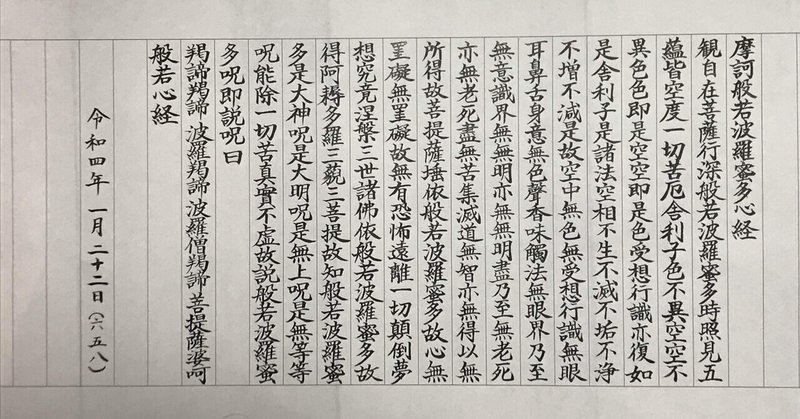 摩訶般若波羅蜜多心経
観自在菩薩行深般若波羅蜜多時照見五
蘊皆空度一切苦厄舎利子色不異空空不
異色色即是空空即是色受想行識亦復如
是舎利子是諸法空相不生不滅不垢不浄
不増不減是故空中無色無受想行識無眼
耳鼻舌身意無色聲香味觸法無眼界乃至
無意識界無無明亦無無明盡乃至無老死
亦無老死盡無苦集滅道無智亦無得以無
所得故菩提薩埵依般若波羅蜜多故心無
罣礙無罣礙故無有恐怖遠離一切顛倒夢
想究竟涅槃三世諸佛依般若波羅蜜多故
得阿耨多羅三藐三菩提故知般若波羅蜜
多是大神呪是大明呪是無上呪是無等等
呪能除一切苦真實不虚故説般若波羅蜜
多呪即説呪曰
羯諦羯諦 波羅羯諦 波羅僧羯諦 菩提薩婆呵
般若心経
令和四年 一月二十二日(六五八)